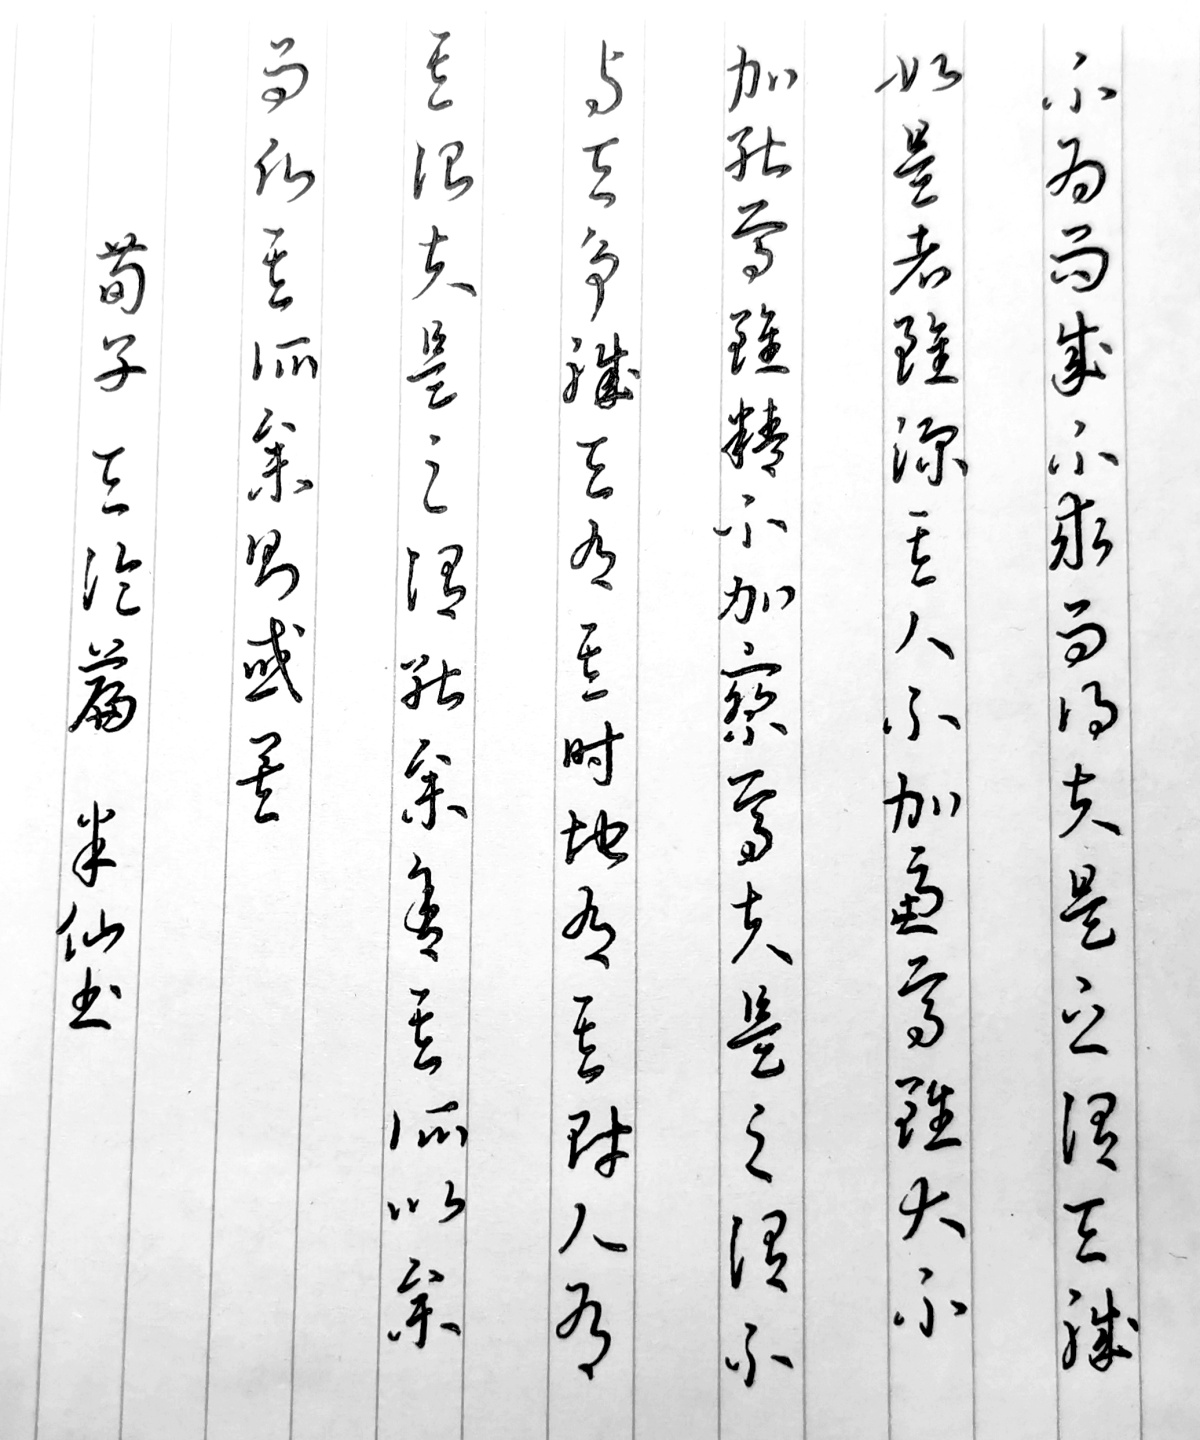 不为而成不求而得夫是之谓天职
如是者虽深其人不加虑焉虽大不
加能焉虽精不加察焉夫是之谓不
与天争职天有其时地有其财人有
其治夫是之谓能参舍其所以参
而愿其所参则惑矣
荀子 天论篇 半仙书